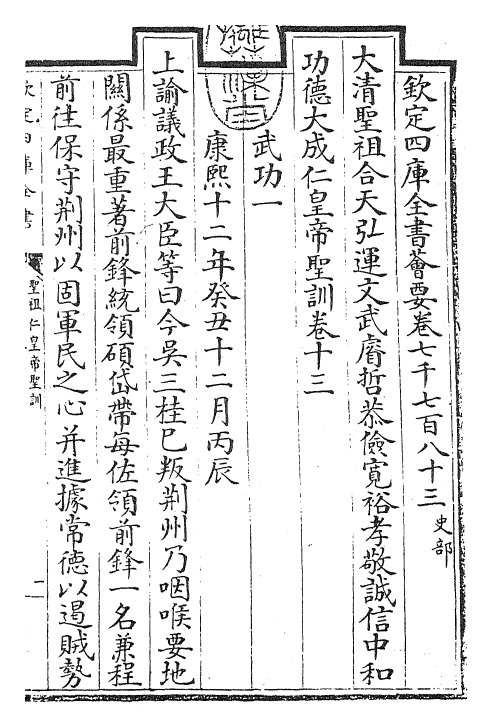 欽定四庫全書薈要卷七千七百八十三 史部
大清聖祖合天弘運文武睿哲恭儉寬裕孝敬誠信中和
功德大成仁皇帝聖訓卷十三
武功一
康熙十二年癸丑十二月丙辰
上諭議政王大臣等曰今吳三桂已叛荆州乃咽喉要地
關係最重著前鋒統領碩岱帶每佐領前鋒一名兼程
前往保守荆州以固軍民之心并進據常德以遏賊勢
欽定四庫全書
聖祖仁皇帝聖訓
一